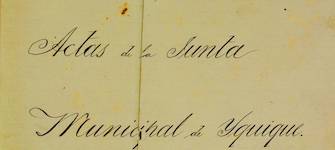 Actas de la Junta
Municipal de Yquique.